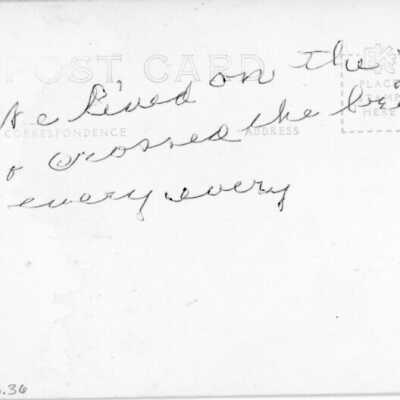 POST CARD
lived on the
PLACE
STAMP
HERE
CORRESPONDENCE
ADDRESS
crossed the
every every
.36